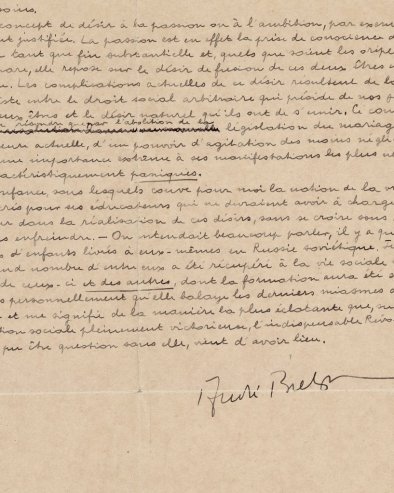 soins.
concept de désir à la passion ou à l'ambition, par exem
nt justifiée. La passion est en effet la prise de conscience d
tant que fin substantielle et, quels que soient les
elle repose sur le désir de fusion de ces deux êtres
Les complications actuelles de ce désir résultent de
iste entre le droit social arbitraire qui préside de nos j
eux êtres et le désir naturel qu'ils ont de s'unir. Ce con
résoudre que par l'abolition de
législation du mariage
eure actuelle, d'un pouvoir d'agitation des moins négli
une importance extrême à ses manifestations les plus
actéristiquement paniques.
enfance, sans lesquels couve pour moi la notion de la v
crés pour ses éducateurs qui ne devraient avoir à charge
er dans la réalisation de ces désirs, sans se croire sous
enfreindre. — On entendait beaucoup parler, il y a que
s d'enfants livrés à eux-mêmes en Russie soviétique.
nd nombre d'entre eux a été récupéré à la vie sociale
de ceux-ci et des autres, dont la formation aura été s
s personnellement qu'elle balaye les derniers miasmes d
et me signifie de la manière la plus éclatante que,
tion sociale pleinement victorieuse, l'indispensable Révo
pu être question sans elle, vient d'avoir lieu.
André Breton